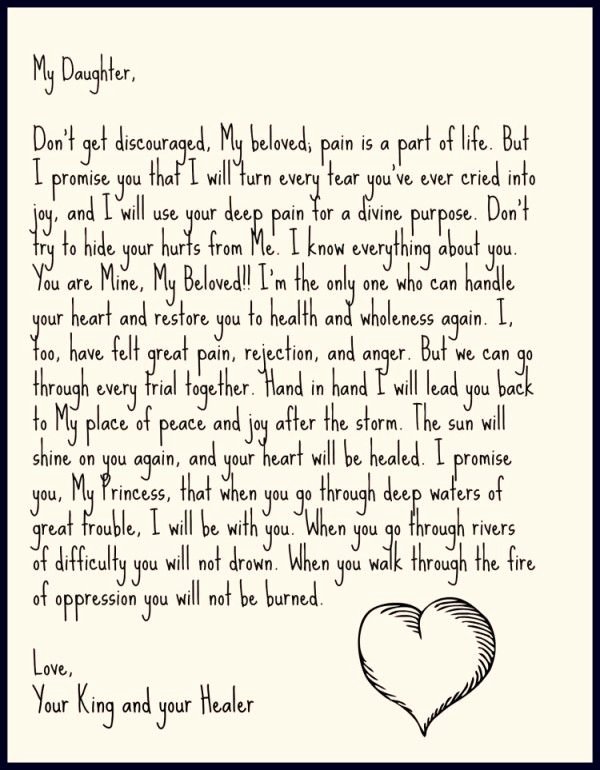 My Daughter,
Don't get discouraged, My beloved; pain is a part of life. But
I promise you that I will turn every tear you've ever cried into
joy, and I will use your deep pain for a divine purpose. Don't
try to hide your hurts from Me. I know everything about you.
You are Mine, My Beloved!! I'm the only one who can handle
your heart and restore you to health and wholeness again. I,
too, have felt great pain, rejection, and anger. But we can go
through every trial together. Hand in hand I will lead you back
to My place of peace and joy after the storm. The sun will
shine on you again, and your heart will be healed. I promise
you, My Princess, that when you go through deep waters of
great trouble, I will be with you. When you go through rivers
of difficulty you will not drown. When you walk through the fire
of oppression you will not be burned.
Love,
Your King and your Healer